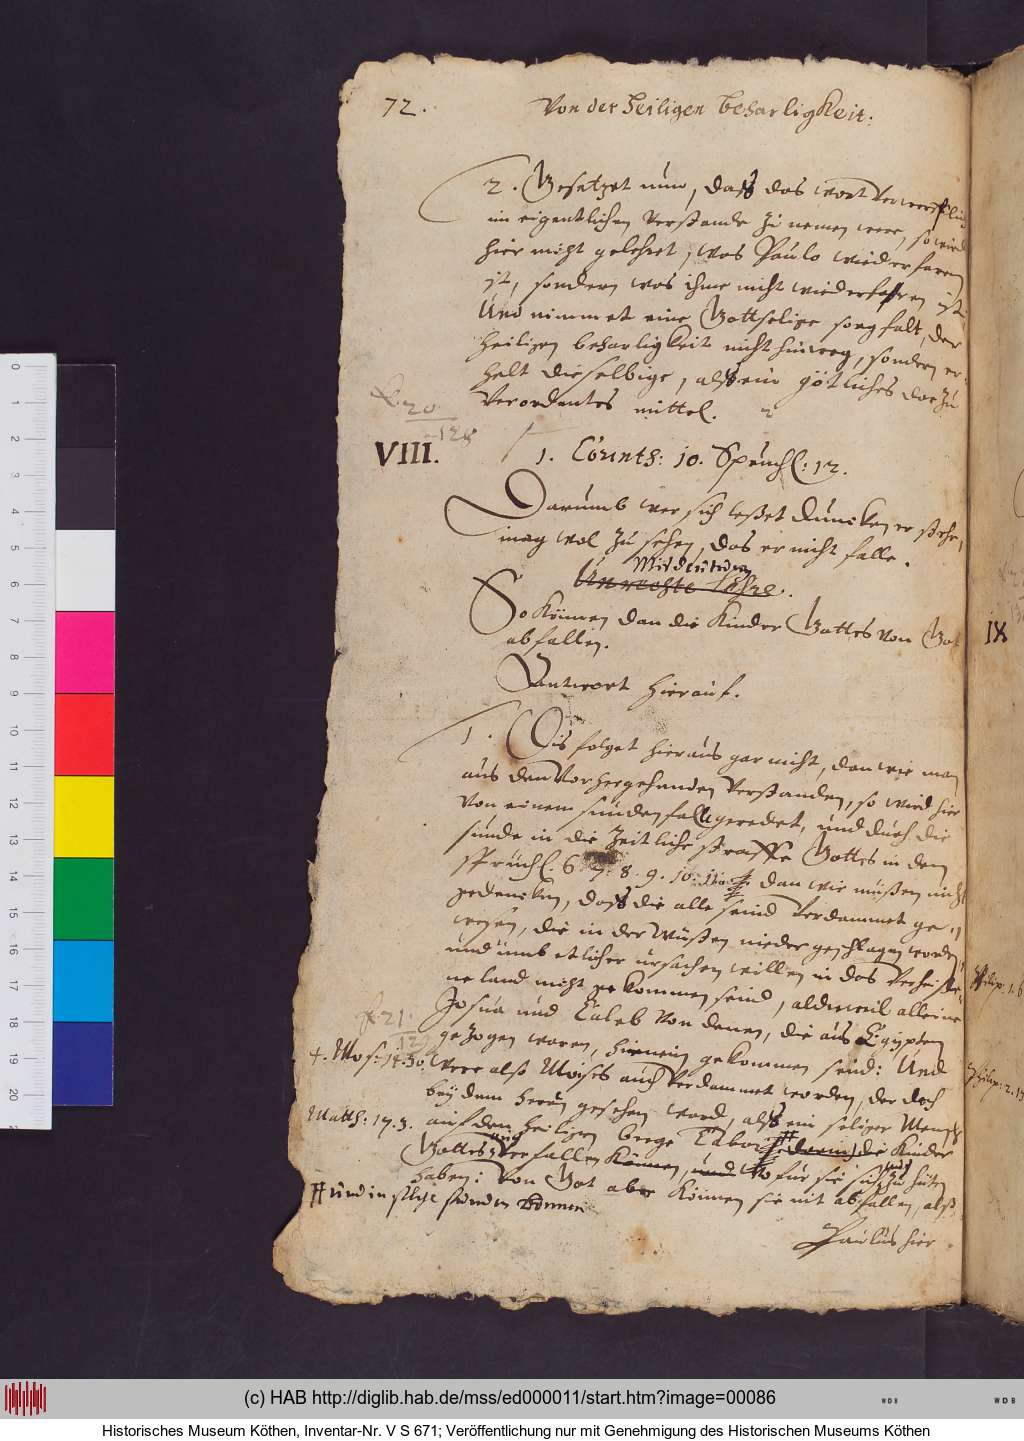 72. Von der heiligen beharligkeit.
2. Gesetzet nun, daß das wort verwerflich
im eigentlichen verstande zu nemen were, so wird
hier nicht gelehret, was Paulo wiederfaren
ist, sondern was ihme nicht wiederfahren ist.
Und nimmet eine Gottselige sorgfalt, der
heiligen beharligkeit nicht hinweg, sondern er-
helt dieselbige, alß ein götliches darzu
verordentes mittel.
f. 20
128
VIII.
1. Corinth: 10. Sprüchl: 12.
Darumb wer sich leßet duncken er stehe,
mag wol zu sehen, das er nicht falle.
Misdeutung
Unrechte Lähre.
So können dan die Kinder Gottes von Got
abfallen.
Antwort hierauf.
1. Dis folget hieraus gar nicht, dan wie man
aus den vorhergehenden verstanden, so wird hier
von einem sünden fall geredet, und durch die
sünde in die zeitliche straffe Gottes in dem
sprüchl. 6. 7. 8. 9. 10. dan wir müßen nicht
gedencken, daß die alle seind verdammet ge-
wesen, die in der wüsten nieder geschlagen worden,
und umb etlicher ursachen willen in das verheiße-
ne land nicht gekommen seind, aldieweil alleine
Josua und Caleb von denen, die aus Egypten
gezogen waren, hienein gekommen seind: Und
f. 21.
129
4. Mos: 14.30.
were also Moises auch verdammet worden, der doch
bey dem heren gesehen ward, alß ein seliger Mensch
Matth: 17.3.
auf dem heiligen berge Tabor die Kinder
Gottes verfallen können, und wofür sie sich zu hüten
haben: Von Got aber können sie nit abfallen, alß
und in solche sünden können
Paulus hier
IX
Philip: 1. 6
Philip: 2. 13
0
1
2
3
4
5
6
7
8
9
10
11
12
13
14
15
16
17
18
19
20
(c) HAB http://diglib.hab.de/mss/ed000011/start.htm?image=00086
WDB
WDB
Historisches Museum Köthen, Inventar-Nr. V S 671; Veröffentlichung nur mit Genehmigung des Historischen Museums Köthen